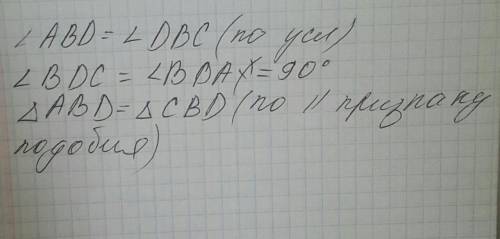 ∠ABD = ∠DBC (по усл)
∠BDC = ∠BDA = 90°
△ABD = △CBD (по II признаку
подобия)